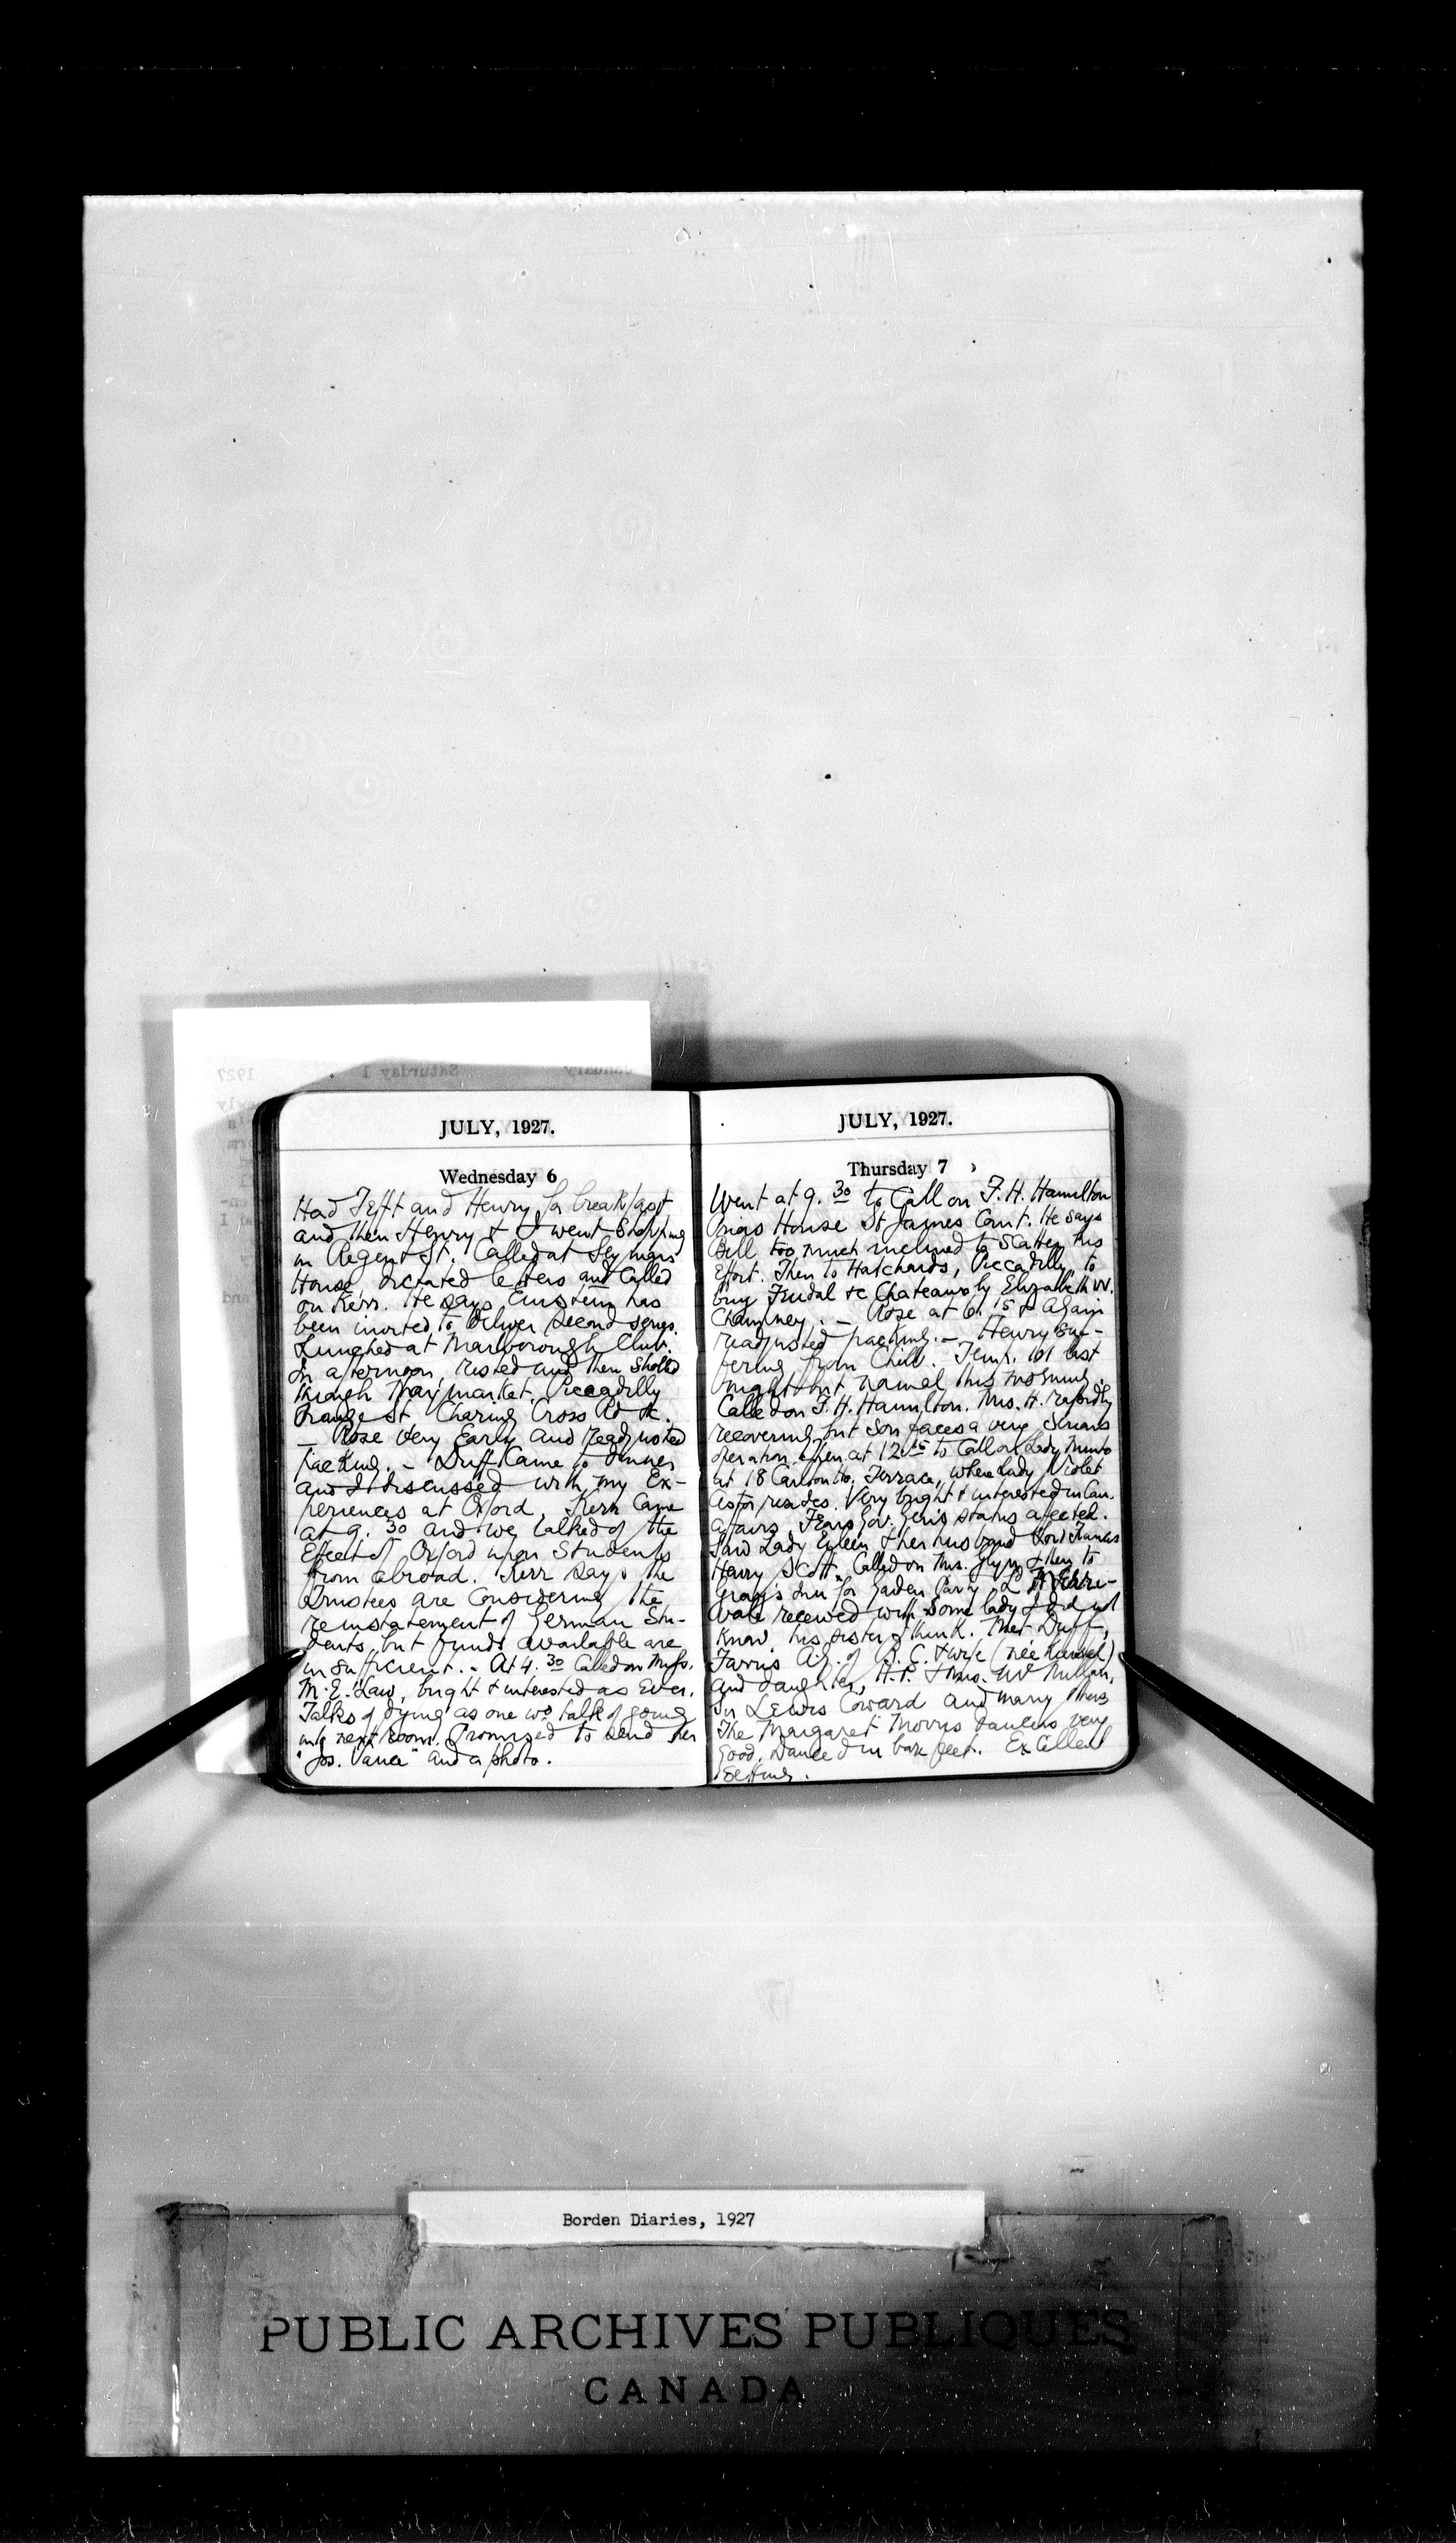 JULY, 1927.
Wednesday 6
Had Tefft and Henry for breakfast
and then Henry & I went shopping
in Regent St. Called at Seymour
House, dictated letters and called
on Kerr. He says Einstein has
been invited to deliver second series.
Lunched at Marlborough Club.
In afternoon, rested and then strolled
through Haymarket, Piccadilly
Orange St Charing Cross Rd &c.
— Rose very early and readjusted
packing. – Duff came to dinner
and I discussed with my Ex-
periences at Oxford. Kerr came
at 9.30 and we talked of the
Effect of Oxford upon Students
from abroad. Kerr says the
Trustees are Considering the
reinstatement of German Stu-
dents but funds available are
insufficient. – At 4.30 Called on Miss
M.E. Law, bright & interested as Ever.
Talks of dying as one wd talk of going
into next room. Promised to send her
"Jos. Vance" and a photo.
JULY, 1927.
Thursday 7
Went at 9.30 to Call on F.H. Hamilton
House St James Court. He says
Bell too much inclined to Scatter his
Effort. Then to Hatchards, Piccadilly, to
buy Feudal &c Chateaux by Elizabeth W.
Champney. – Rose at 6.15 & again
readjusted packing. – Henry suf-
fering from Chill. Temp. 101 last
night but normal this morning.
Called on F.H. Hamilton. Mrs. H. rapidly
recovering but Son faces a very Serious
operation. Then at 12.15 to Call on Lady Minto
at 18 Carlton Ho. Terrace, where Lady Violet
Astor resides. Very bright & interested in Can.
affairs. Fears Gov. Gen's status affected.
Saw Lady Eileen & her husband Lord Francis
Scott. Called on Mrs. Glyn & then to
Gray's Inn for Garden Party. Ld
received with some lady I did not
know, his sister I think. Met Duff,
Farris A.G. of B.C. & wife (née)
and daughter, H.P. & Mrs. McMillan,
Sir Lewis Coward and many others
The Margaret Morris dancers very
good. Danced in bare feet. Excellent
Setting.
Borden Diaries, 1927
PUBLIC ARCHIVES PUBLIQUES
CANADA